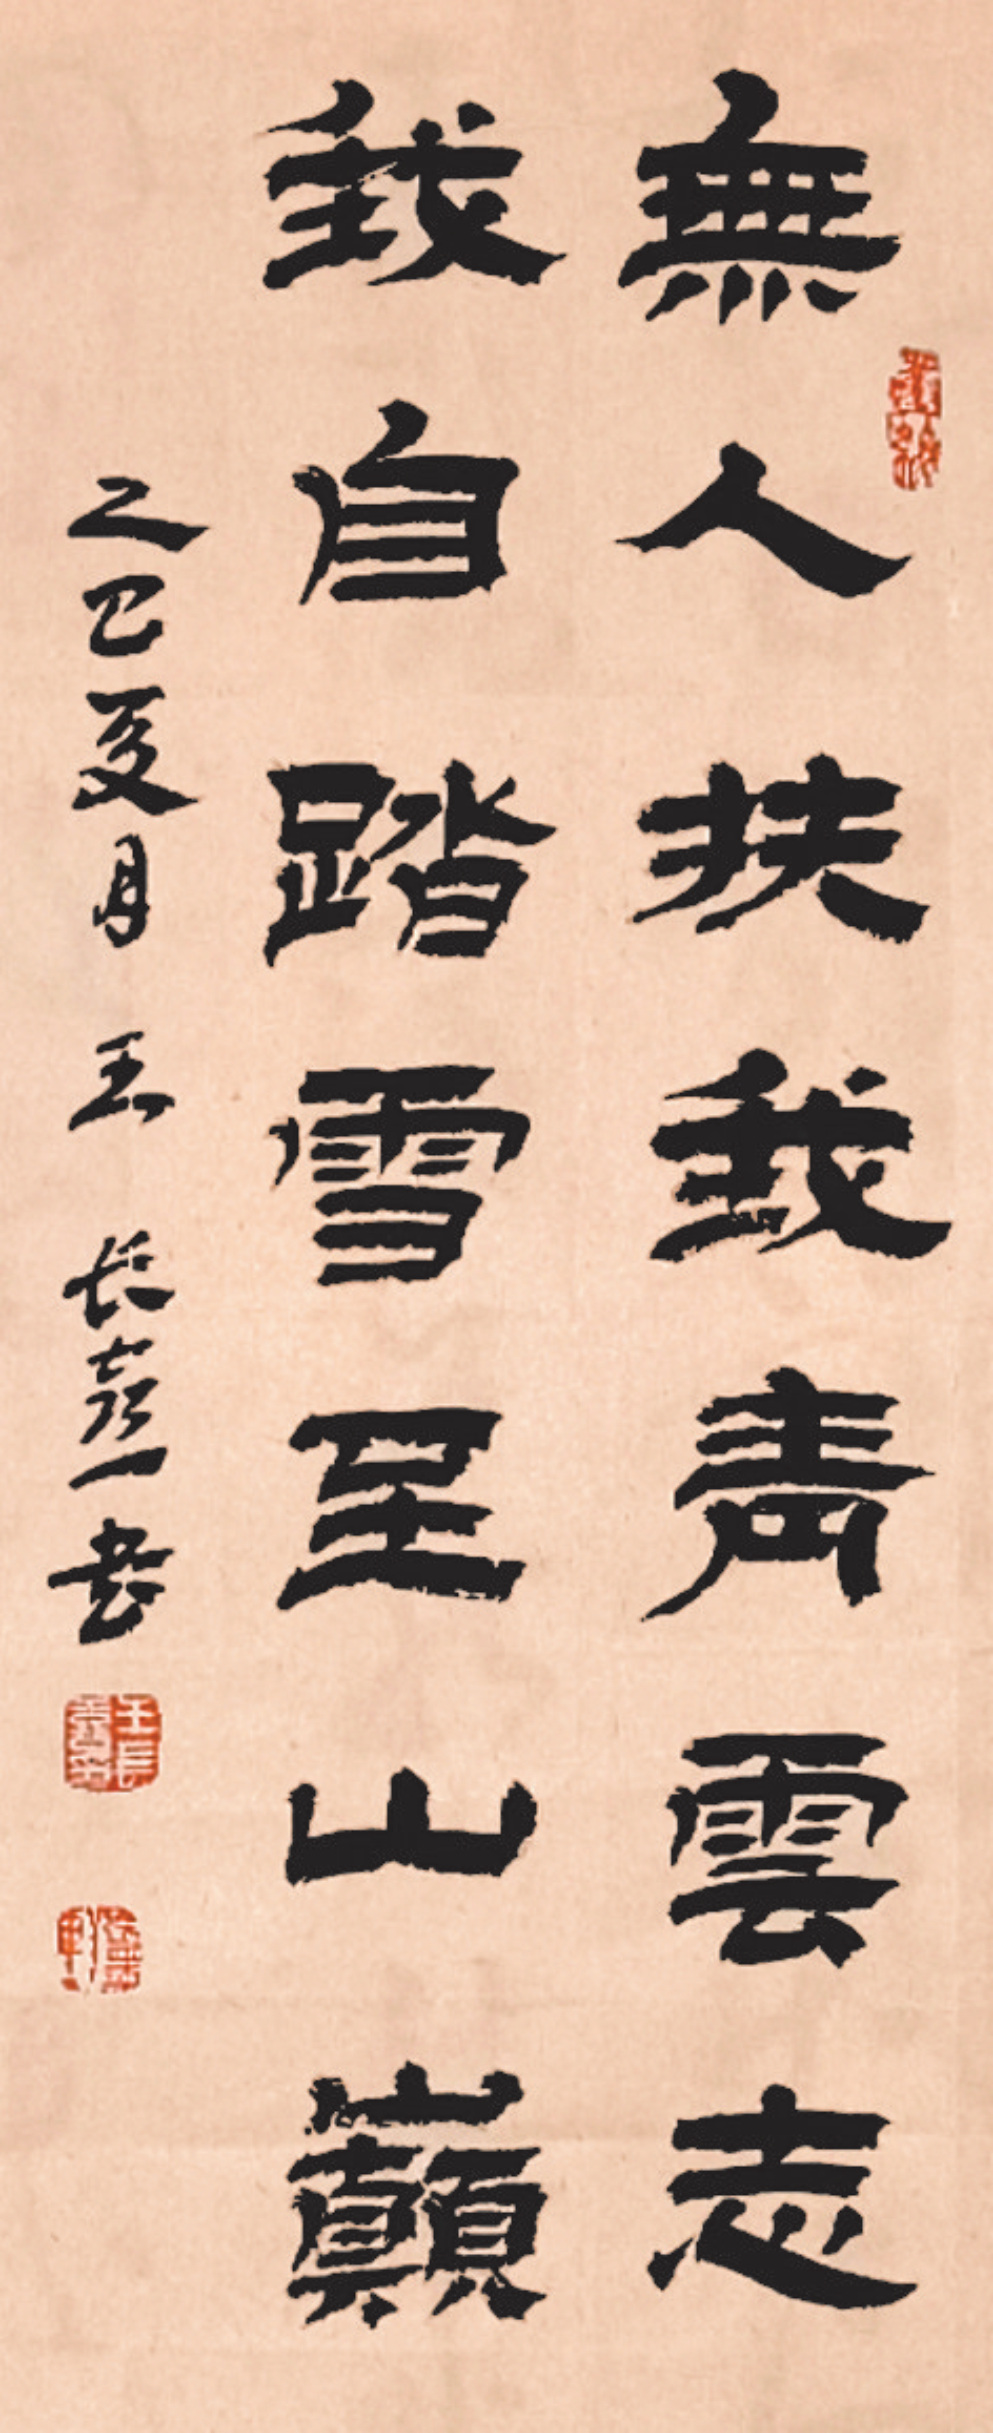 無人扶我青雲志
我自踏雪至山巔
乙巳夏月 王長喜書